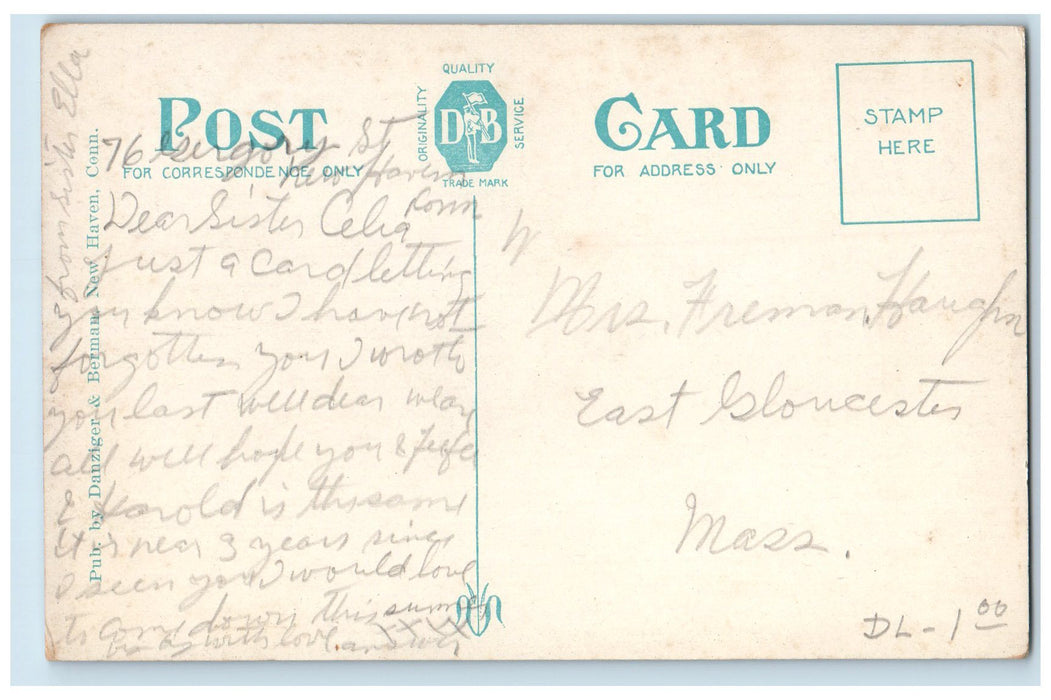 POST
CARD
FOR CORRESPONDENCE ONLY
FOR ADDRESS ONLY
QUALITY
ORIGINALITY
SERVICE
D B
TRADE MARK
STAMP
HERE
Pub. by Danziger & Berman, New Haven, Conn.
76 Gregory St
New Haven
Conn
Dear Sister Celia
Just a Card letting
you know I have not
forgotten you I wrote
you last well dear we ar
all well hope you &
& Harold is the same
It is near 3 years since
I seen you I would love
to come down this summer
by by with love answer
XXX
from sister Ella
Mrs. Freman Haughn
East Gloucester
Mass.
DL - 1 00